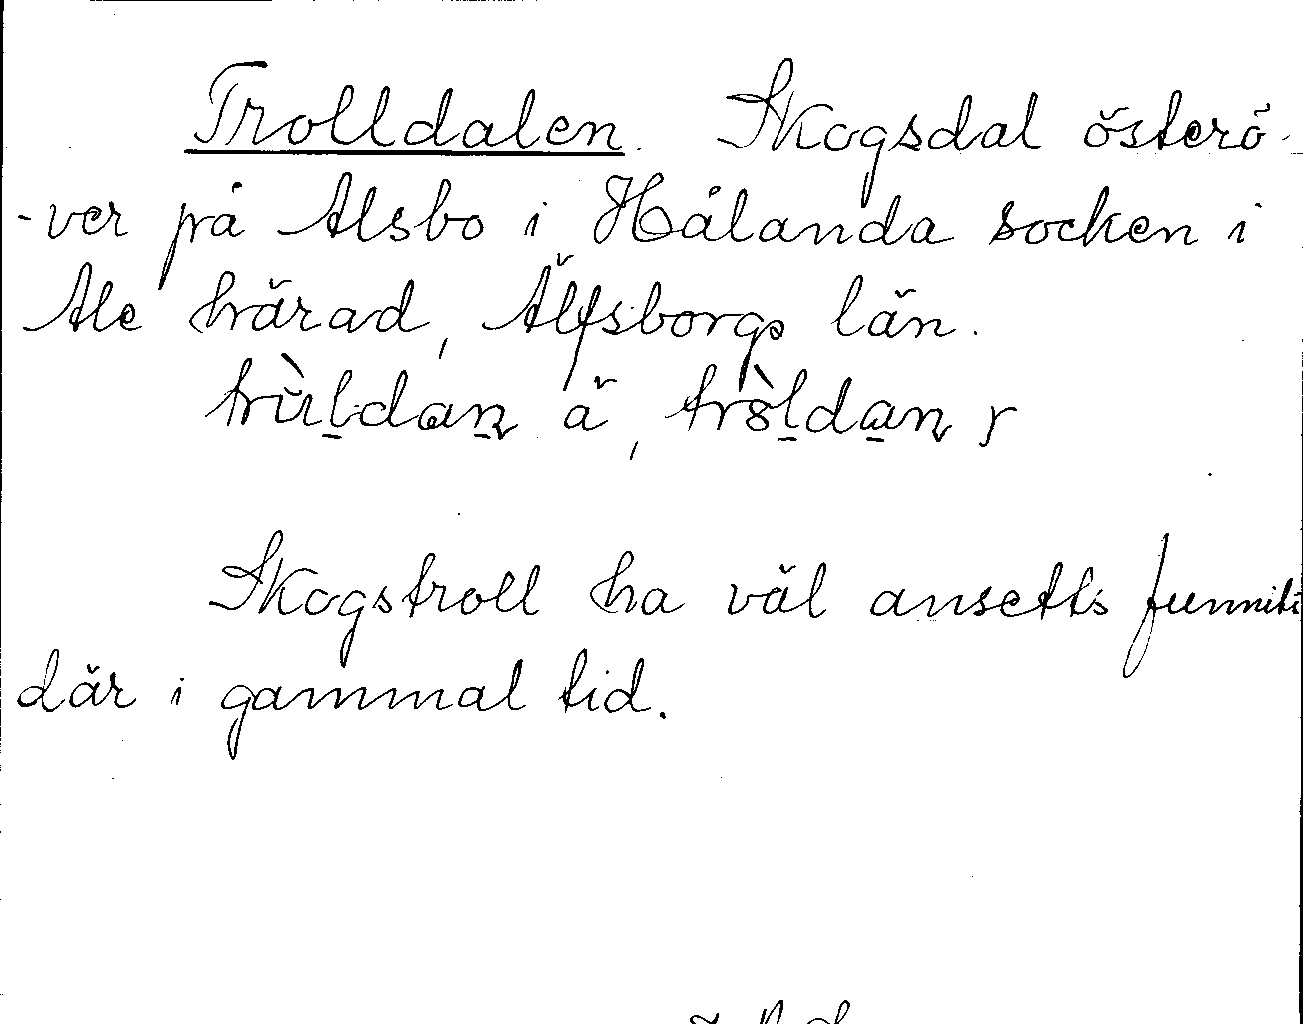 Trolldalen. Skogsdal österö-
-ver på Alsbo i Hålanda socken i
Ale härad, Älfsborgs län.
ä,
Skogstroll ha väl ansetts funnits
där i gammal tid.